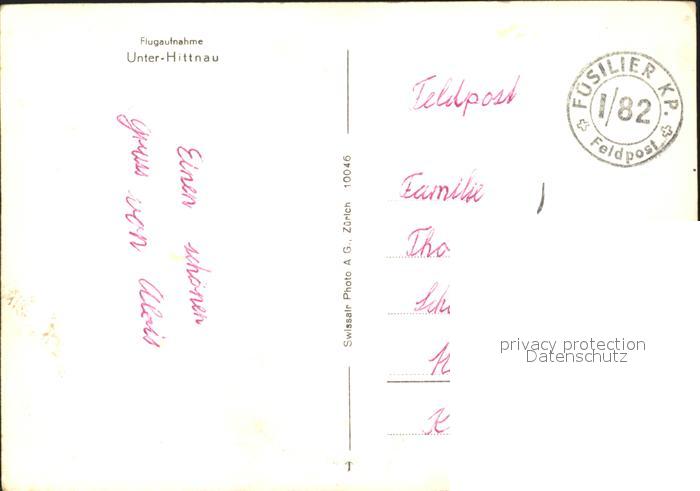 Flugaufnahme
Unter-Hittnau
Einen schönen
gruss von Alois
Swissair Photo A G., Zürich 10046
Feldpost
FÜSILIER KP.
I/82
Feldpost
Familie
Tho
Sch
H
K
privacy protection
Datenschutz